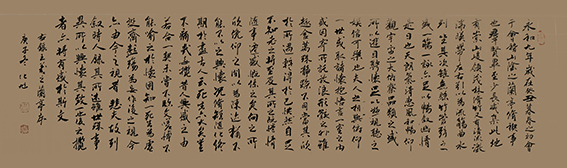 永和九年歲在癸丑暮春之初會
于會稽山陰之蘭亭脩禊事
也群賢畢至少長咸集此地
有崇山峻領茂林脩竹又有清流激
湍暎帶左右引以為流觴曲水
列坐其次雖無絲竹管弦之
盛一觴一詠亦足以暢敘幽情
是日也天朗氣清惠風和暢仰
觀宇宙之大俯察品類之盛
所以遊目騁懷足以極視聽之
娛信可樂也夫人之相與俯仰
一世或取諸懷抱悟言一室之內
或因寄所託放浪形骸之外雖
趣舍萬殊靜躁不同當其欣
於所遇暫得於己快然自足
不知老之將至及其所之既惓情
隨事遷感慨係之矣向之所
欣俛仰之間以為陳迹猶不
能不以之興懷況脩短隨化終
期於盡古人云死生亦大矣豈
不痛哉每攬昔人興感之由
若合一契未嘗不臨文嗟悼不
能喻之於懷固知一死生為虛
誕齊彭殤為妄作後之視今
亦由今之視昔悲夫故列
敘時人錄其所述雖世殊事
異所以興懷其致一也後之攬
者亦將有感於斯文
右錄王羲之蘭亭序
庚子冬